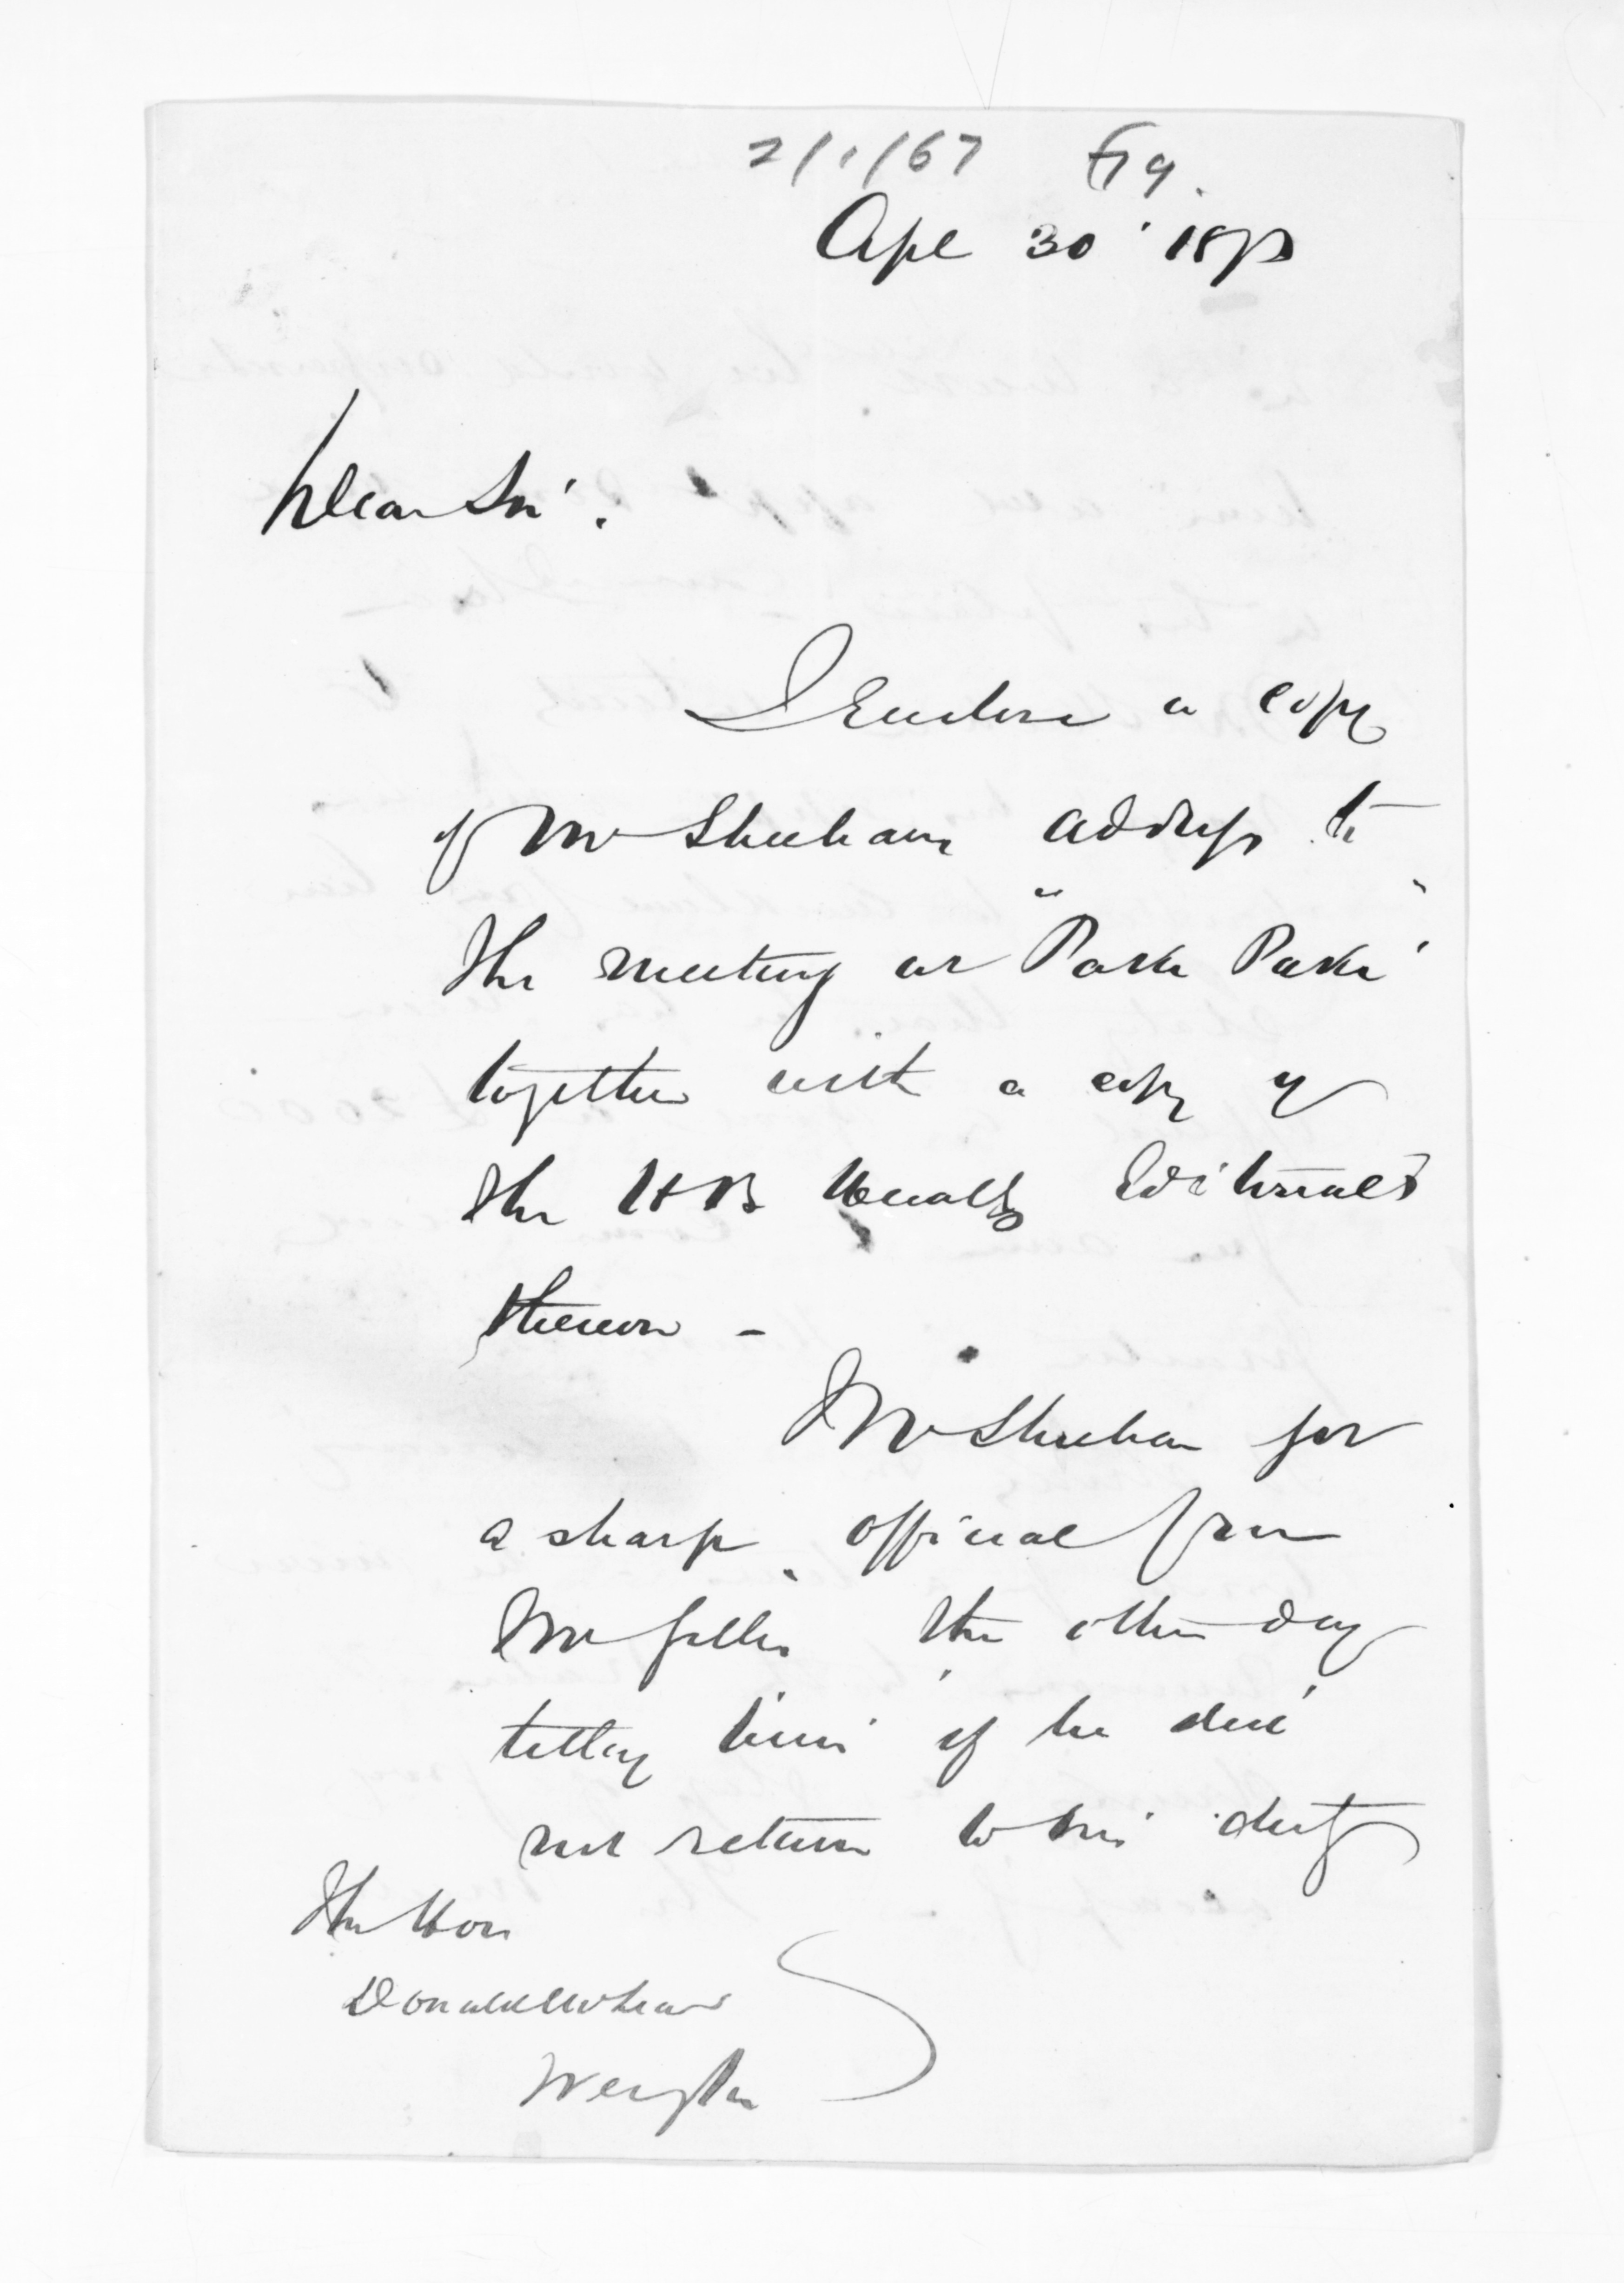 2/1/67 F19.
Apl 30' 1873
Dear Sir.
I Enclose a copy
of Mr Sheehans address to
the meeting at "Paki Paki"
together with a copy of
the HB Heralds Editorials
thereon -
Mr Sheehan got
a sharp official from
Mr the other day
telling him if he did
not return to his duty
The Hon
Donald McLean
Wengton